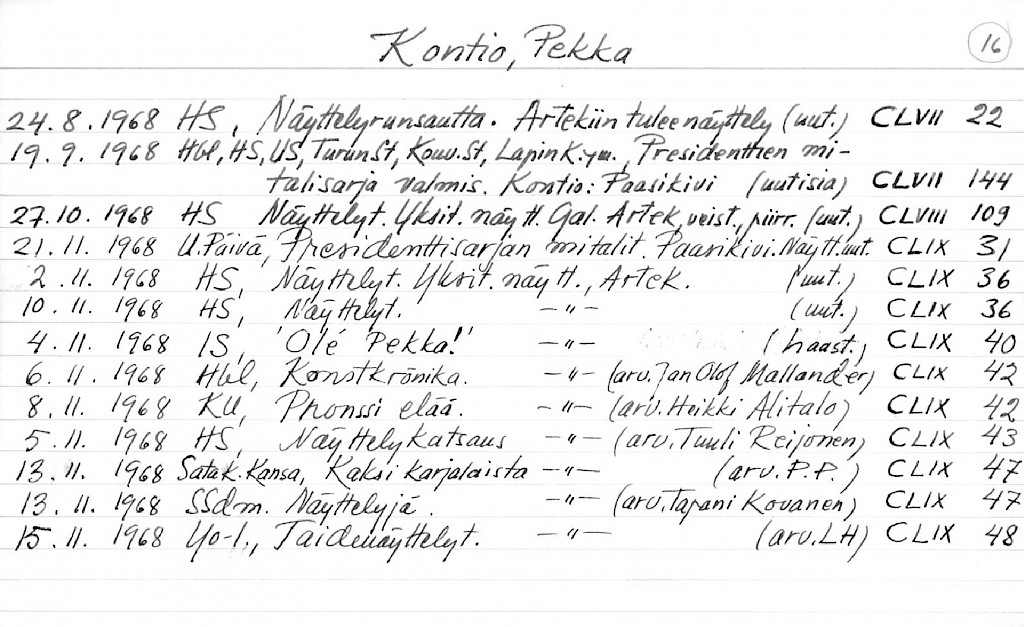 Kontio, Pekka 16
24.8.1968 HS, Näyttelyrunsautta. Artekiin tulee näyttely (uut.) CLVII 22
19.9.1968 Hbl, HS, US, TurunSt, Kouv.St, Lapin K. ym., Presidenttien mi-
talisarja valmis. Kontio: Paasikivi (uutisia) CLVII 144
27.10.1968 HS Näyttelyt. Yksit. näytt. Gal. Artek, veist., piirr. (uut.) CLVIII 109
21.11.1968 U.Päivä, Presidenttisarjan mitalit. Paasikivi. Näytt.uut. CLIX 31
2.11.1968 HS, Näyttelyt. Yksit. näytt., Artek. (uut.) CLIX 36
10.11.1968 HS, Näyttelyt. —"— (uut.) CLIX 36
4.11.1968 IS, 'Olé Pekka!' —"— (haast.) CLIX 40
6.11.1968 Hbl, Konstkrönika. —"— (arv. Jan Olof Mallander) CLIX 42
8.11.1968 KU, Pronssi elää. —"— (arv. Heikki Alitalo) CLIX 42
5.11.1968 HS, Näyttelykatsaus —"— (arv. Tuuli Reijonen) CLIX 43
13.11.1968 Satak. Kansa, Kaksi karjalaista —"— (arv. P.P.) CLIX 47
13.11.1968 SSdm. Näyttelyjä. —"— (arv. Tapani Kovanen) CLIX 47
15.11.1968 Yo-l., Taidenäyttelyt. —"— (arv. LH) CLIX 48